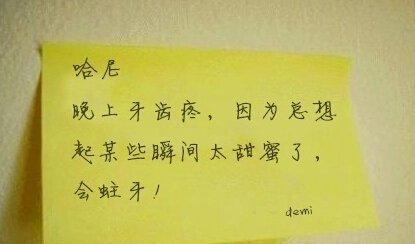 哈尼
晚上牙齿疼，因为总想
起某些瞬间太甜蜜了，
会蛀牙！
demi